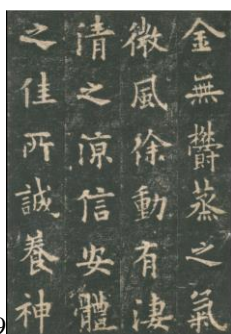 金無鬱蒸之氣
微風徐動有淒
清之涼信安體
之佳所誠養神
9